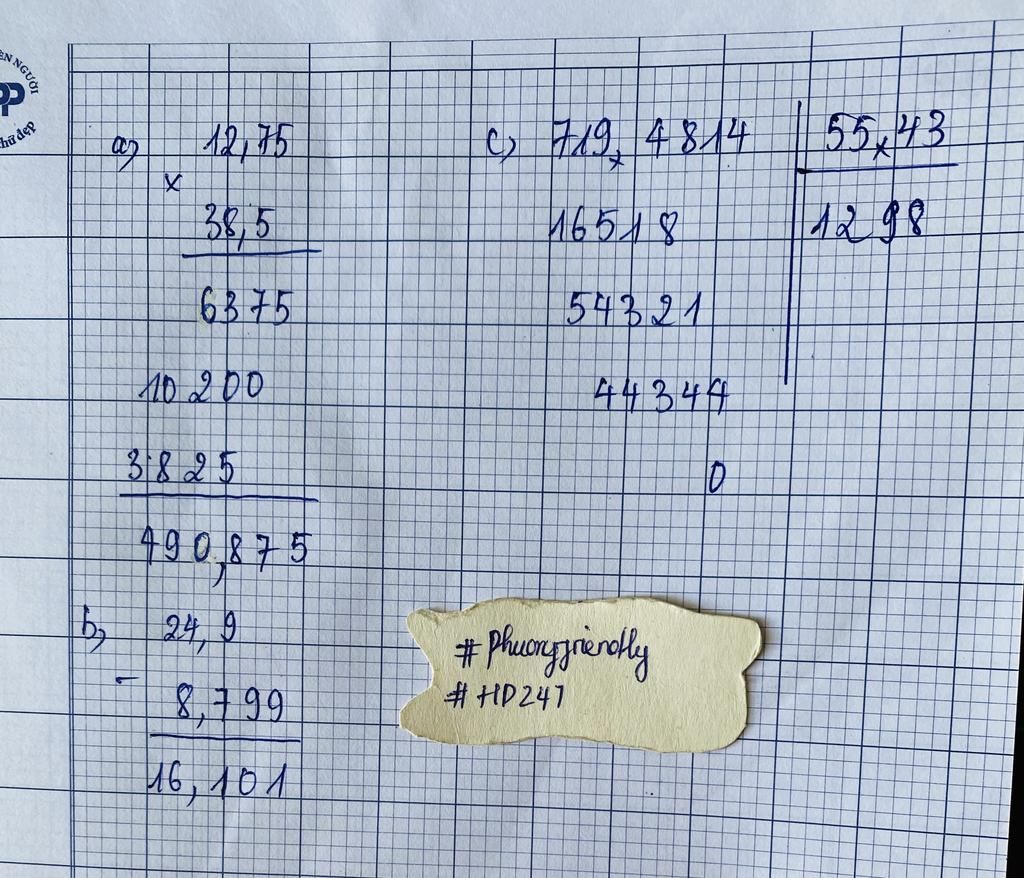 a,
12,75
x
38,5
6375
10200
3825
490,875
b,
24,9
-
8,799
16,101
c, 719,4814
55,43
16518
1298
54321
44344
0
#Phuongfriendly
#HD247
ỆN NGƯỜI
hữ đẹp